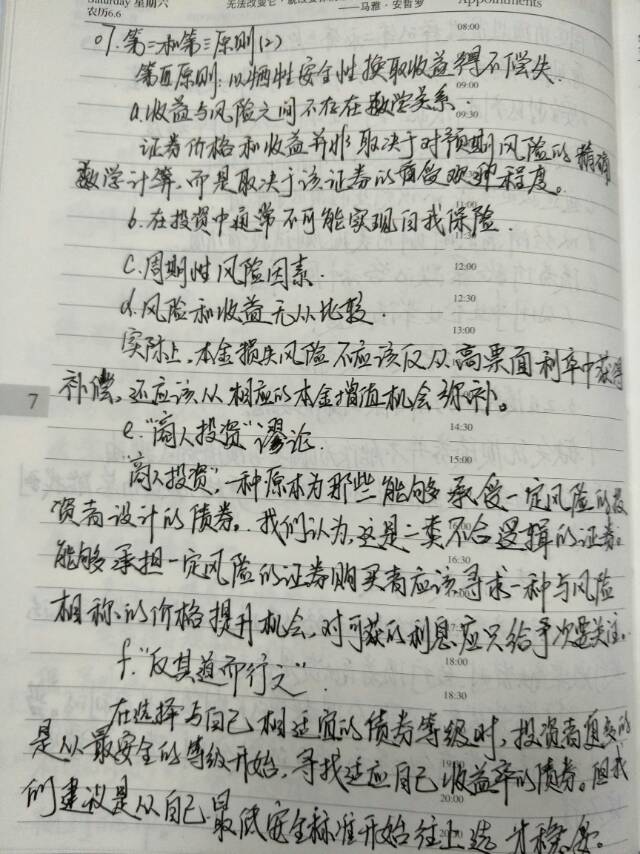 Saturday 星期六
农历6.6
——马雅·安哲罗
Appointments
08:00
07.第二和第三原则(2)
第四原则:以牺牲安全性换取收益得不偿失.
09:00
a.收益与风险之间不存在数学关系.
09:30
证券价格和收益并非取决于对预期风险的精确
数学计算,而是取决于该证券的受欢迎程度。
b.在投资中通常不可能实现自我保险.
11:30
c.周期性风险因素.
12:00
d.风险和收益无从比较.
12:30
13:00
实际上,本金损失风险不应该仅从高票面利率中获得
补偿,还应该从相应的本金增值机会弥补。
7
e.“商人投资”谬论.
14:30
15:00
“商人投资”,一种原本为那些能够承受一定风险的投
资者设计的债券。我们认为,这是一类不合逻辑的证券。
能够承担一定风险的证券购买者应该寻求一种与风险
16:30
相称的价格提升机会,对可获的利息应只给予次要关注。
f.“反其道而行之”.
18:00
18:30
在选择与自己相适宜的债券等级时,投资者通常的
是从最安全的等级开始,寻找适应自己收益率的债券。但我
们建议是从自己最低安全标准开始往上选才稳妥。
20:00